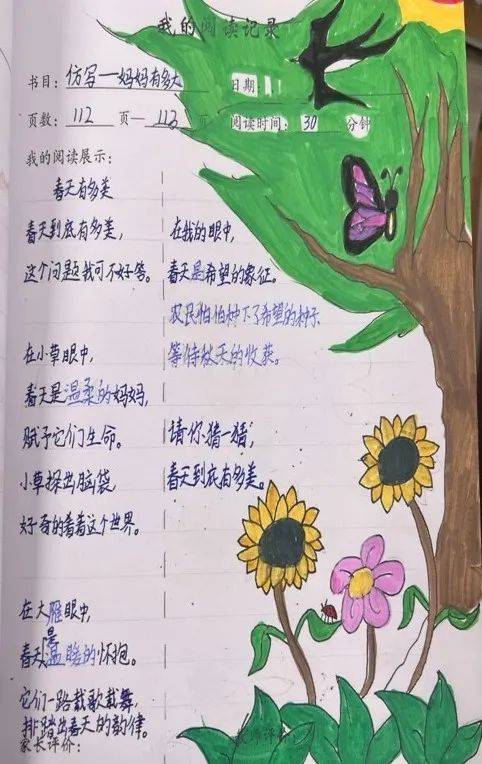 我的阅读记录
书目：仿写一妈妈有多大
日期
页数：112 页—113 页 阅读时间：30 分钟
我的阅读展示：
春天有多美
春天到底有多美，
这个问题我可不好答。
在小草眼中，
春天是温柔的妈妈，
赋予它们生命。
小草探出脑袋，
好奇的看着这个世界。
在大雁眼中，
春天是温暖的怀抱。
它们一路载歌载舞，
排踏出春天的韵律。
在我的眼中，
春天是希望的象征。
农民伯伯种下了希望的种子
等待秋天的收获。
请你猜一猜，
春天到底有多美。
家长评价：
教师评价：